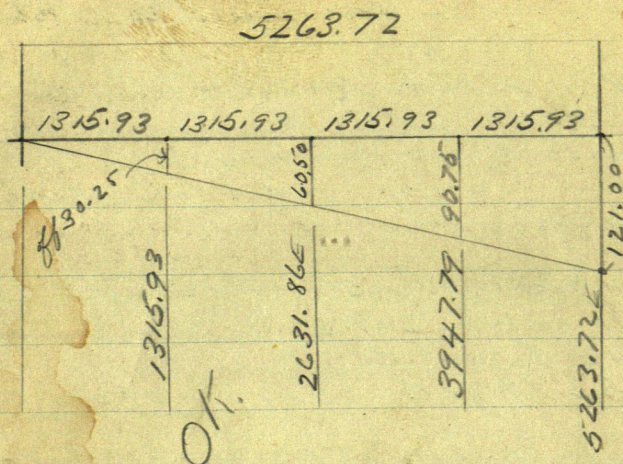 5263.72
1315.93 1315.93 1315.93 1315.93
30.25
60.50
90.75
121.00
1315.93
2631.86E
3947.79
5263.72E
OK.